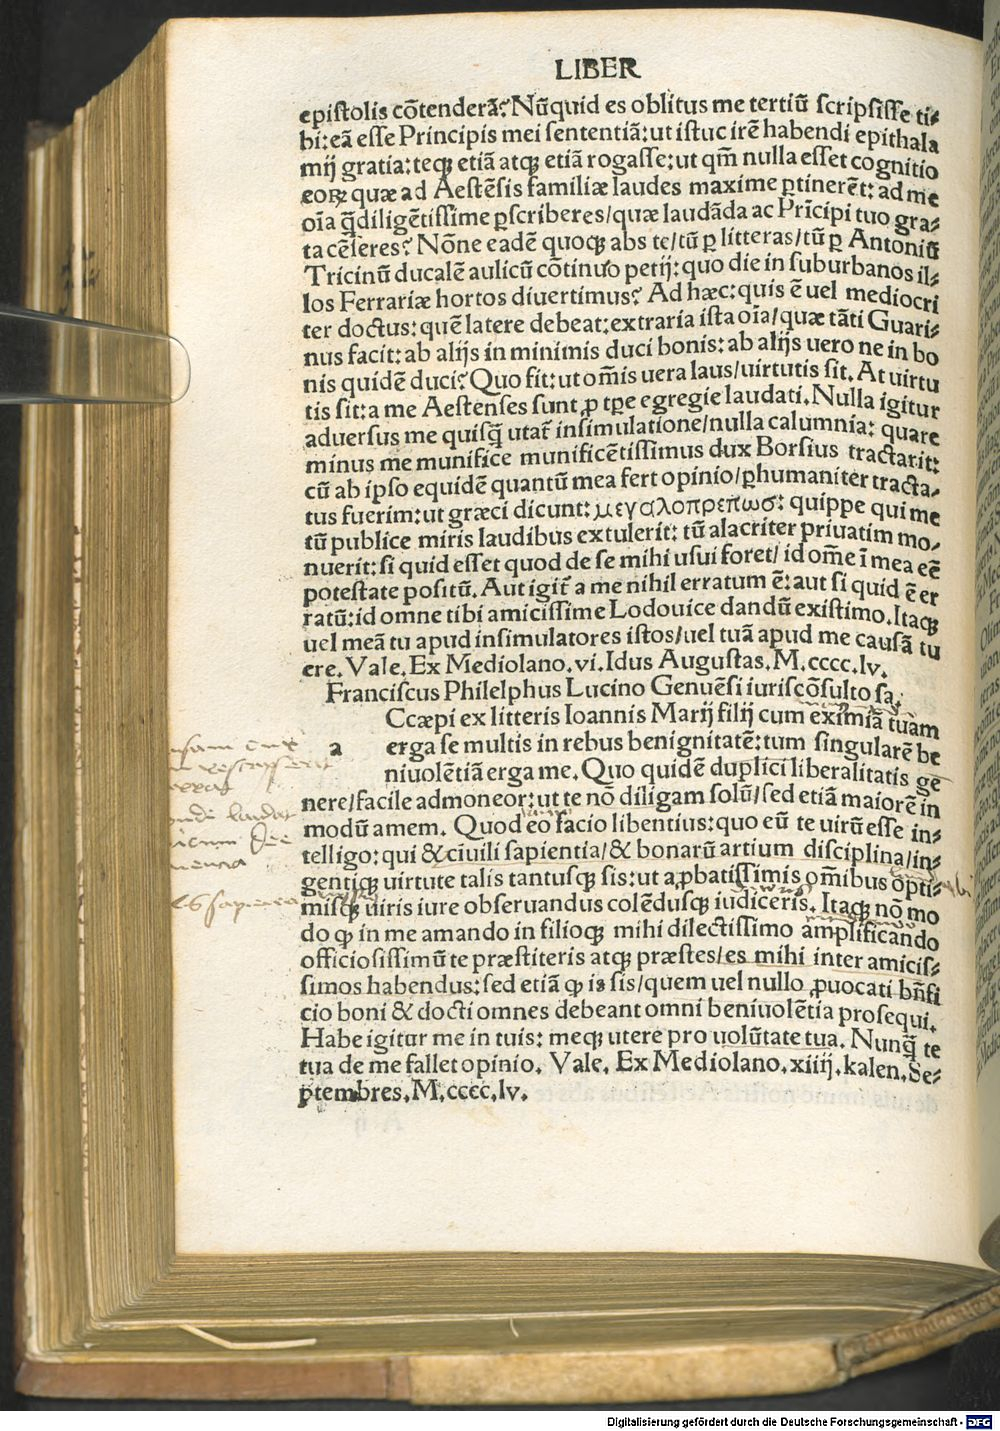 LIBER
epistolis cõtenderã? Nũquid es oblitus me tertiũ scripsisse ti⸗
bi: eã esse Principis mei sententiã: ut istuc irẽ habendi epithala
mij gratia: teqꝫ etiã atqꝫ etiã rogasse: ut qm̃ nulla esset cognitio
eoꝝ quæ ad Aestẽsis familiæ laudes maxime ꝑtinerẽt: ad me
oĩa q̃diligẽtissime ꝑscriberes/quæ laudãda ac Prĩcipi tuo gra⸗
ta cẽseres? Nõne eadẽ quoqꝫ abs te/tũ ꝑ litteras/tũ ꝑ Antoniũ
Tricinũ ducalẽ aulicũ cõtinuo petij: quo die in suburbanos il⸗
los Ferrariæ hortos diuertimus? Ad hæc: quis ẽ uel mediocri
ter doctus: quẽ latere debeat: extraria ista oĩa/quæ tãti Guari⸗
nus facit: ab alijs in minimis duci bonis: ab alijs uero ne in bo
nis quidẽ duci? Quo fit: ut om̃is uera laus/uirtutis sit. At uirtu
tis sit: a me Aestenses sunt ꝓ tꝑe egregie laudati. Nulla igitur
aduersus me quisq̃ utat̃ insimulatione/nulla calumnia: quare
minus me munifice munificẽtissimus dux Borsius tractarit:
cũ ab ipso equidẽ quantũ mea fert opinio/ꝑhumaniter tracta⸗
tus fuerim: ut græci dicunt: μεγαλοπρεπωσ: quippe qui me
tũ publice miris laudibus extulerit: tũ alacriter priuatim mo⸗
nuerit: si quid esset quod de se mihi usui foret/ id om̃e ĩ mea eẽ
potestate positũ. Aut igit̃ a me nihil erratum ẽ: aut si quid ẽ er
ratũ: id omne tibi amicissime Lodouice dandũ existimo. Itaqꝫ
uel meã tu apud insimulatores istos/uel tuã apud me causã tu
ere. Vale. Ex Mediolano. vi. Idus Augustas. M.cccc.lv.
Franciscus Philelphus Lucino Genuẽsi iuriscõsulto sa.
Ccæpi ex litteris Ioannis Marij filij cum eximiã tuam
a erga se multis in rebus benignitatẽ: tum singularẽ be
niuolẽtiã erga me. Quo quidẽ duplici liberalitatis ge
nere/facile admoneor: ut te nõ diligam solũ/sed etiã maiorẽ in
modũ amem. Quod eo facio libentius: quo eũ te uirũ esse in⸗
telligo: qui & ciuili sapientia/& bonarũ artium disciplina/in⸗
gentiqꝫ uirtute talis tantusqꝫ sis: ut a ꝓbatissimis om̃ibus opti⸗
misqꝫ uiris iure obseruandus colẽdusqꝫ iudiceris. Itaqꝫ nõ mo
do ꝙ in me amando in filioqꝫ mihi dilectissimo amplificando
officiosissimũ te præstiteris atqꝫ præstes/es mihi inter amicis⸗
simos habendus: sed etiã ꝙ is sis/quem uel nullo ꝓuocati bñfi
cio boni & docti omnes debeant omni beniuolẽtia prosequi.
Habe igitur me in tuis: meqꝫ utere pro uolũtate tua. Nunq̃ te
tua de me fallet opinio. Vale. Ex Mediolano. xiiij. kalen. Se⸗
ptembres. M.cccc.lv.
Digitalisierung gefördert durch die Deutsche Forschungsgemeinschaft - DFG